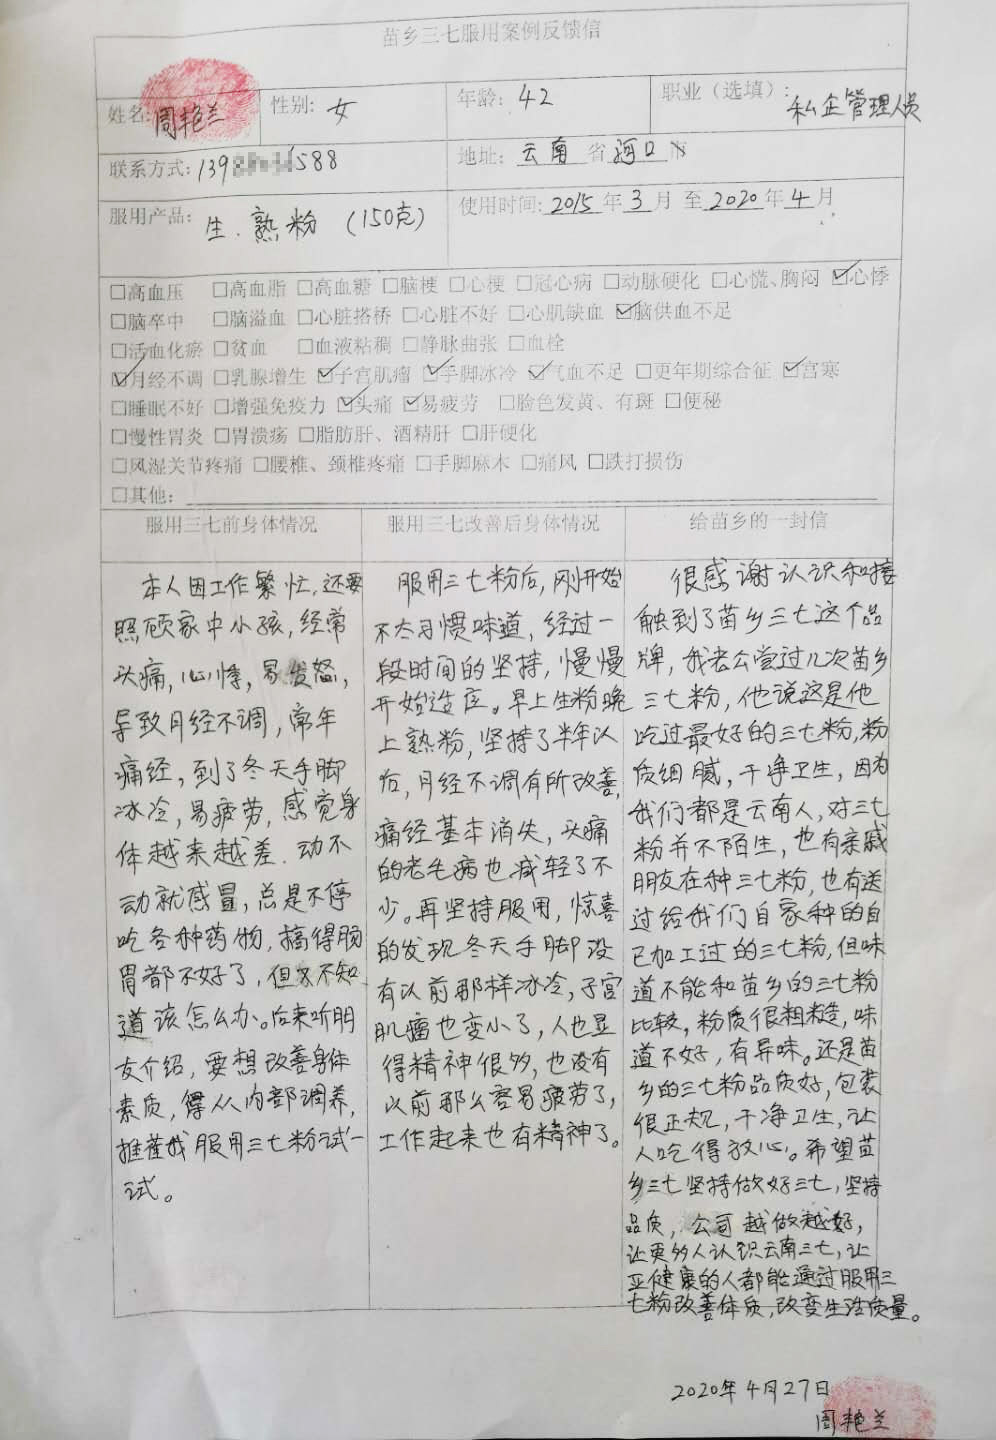 苗乡三七服用案例反馈信
姓名: 周艳兰 性别: 女 年龄: 42 职业（选填）: 私企管理人员
联系方式: 139 588 地址: 云南 省 河口 市
服用产品: 生.熟粉（150克） 使用时间: 2015 年 3 月 至 2020 年 4 月
□高血压 □高血脂 □高血糖 □脑梗 □心梗 □冠心病 □动脉硬化 □心慌、胸闷 ☑心悸
□脑卒中 □脑溢血 □心脏搭桥 □心脏不好 □心肌缺血 ☑脑供血不足
□活血化瘀 □贫血 □血液粘稠 □静脉曲张 □血栓
☑月经不调 □乳腺增生 ☑子宫肌瘤 ☑手脚冰冷 ☑气血不足 □更年期综合征 ☑宫寒
□睡眠不好 □增强免疫力 ☑头痛 ☑易疲劳 □脸色发黄、有斑 □便秘
□慢性胃炎 □胃溃疡 □脂肪肝、酒精肝 □肝硬化
□风湿关节疼痛 □腰椎、颈椎疼痛 □手脚麻木 □痛风 □跌打损伤
□其他:
服用三七前身体情况
本人因工作繁忙,还要
照顾家中小孩,经常
头痛,心悸,易发怒,
导致月经不调,常年
痛经,到了冬天手脚
冰冷,易疲劳,感觉身
体越来越差.动不
动就感冒,总是不停
吃各种药物,搞得肠
胃都不好了,但又不知
道该怎么办。后来听朋
友介绍,要想改善身体
素质,得从内部调养,
推荐我服用三七粉试一
试。
服用三七改善后身体情况
服用三七粉后,刚开始
不太习惯味道,经过一
段时间的坚持,慢慢
开始适应。早上生粉晚
上熟粉,坚持了半年以
后,月经不调有所改善,
痛经基本消失,头痛
的老毛病也减轻了不
少。再坚持服用,惊喜
的发现冬天手脚没
有以前那样冰冷,子宫
肌瘤也变小了,人也显
得精神很多,也没有
以前那么容易疲劳了,
工作起来也有精神了。
给苗乡的一封信
很感谢认识和接
触到了苗乡三七这个品
牌,我老公尝过几次苗乡
三七粉,他说这是他
吃过最好的三七粉,粉
质细腻,干净卫生,因为
我们都是云南人,对三七
粉并不陌生,也有亲戚
朋友在种三七粉,也有送
过给我们自家种的自
己加工过的三七粉,但味
道不能和苗乡的三七粉
比较,粉质很粗糙,味
道不好,有异味。还是苗
乡的三七粉品质好,包装
很正规,干净卫生,让
人吃得放心。希望苗
乡三七坚持做好三七,坚持
品质,公司越做越好,
让更多人认识云南三七,让
亚健康的人都能通过服用三
七粉改善体质,改变生活质量。
2020年4月27日
周艳兰